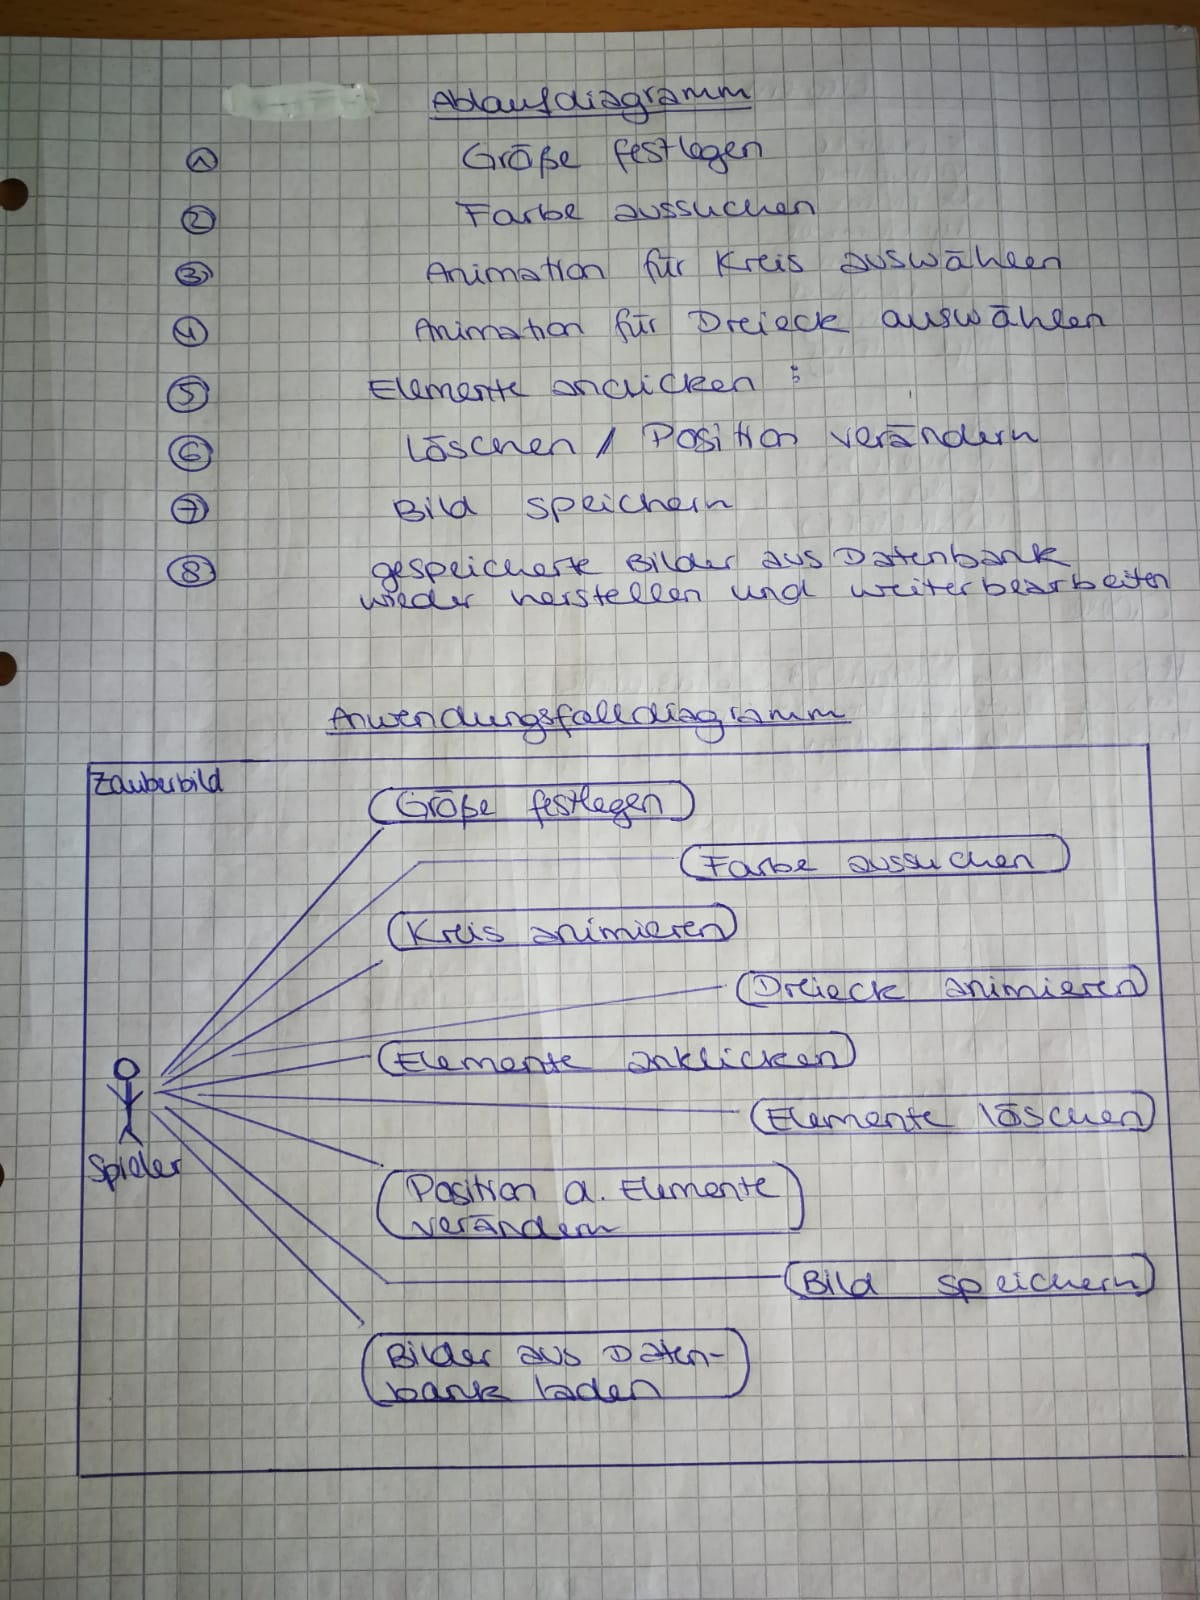 Ablaufdiagramm
1 Größe festlegen
2 Farbe aussuchen
3 Animation für Kreis auswählen
4 Animation für Dreieck auswählen
5 Elemente anclicken :
6 Löschen / Position verändern
7 Bild speichern
8 gespeicherte Bilder aus Datenbank
wieder herstellen und weiterbearbeiten
Anwendungsfalldiagramm
Zauberbild
Größe festlegen
Farbe aussuchen
Kreis animieren
Dreieck animieren
Elemente anklicken
Elemente löschen
Spieler
Position d. Elemente
verändern
Bild speichern
Bilder aus Daten-
bank laden